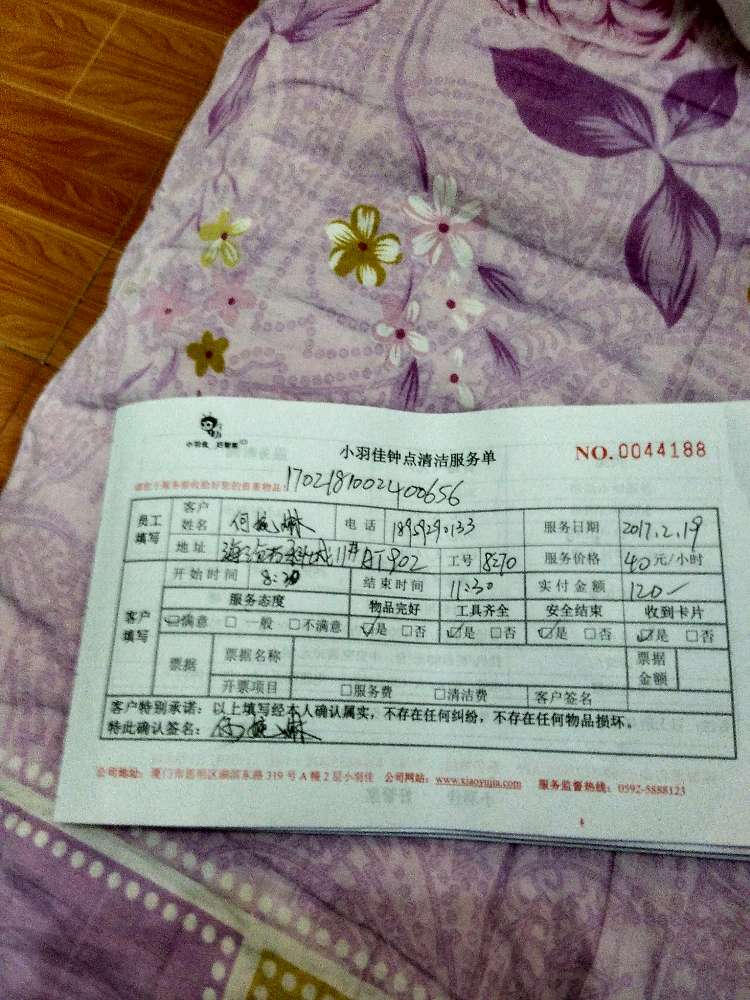 小羽佳
小羽佳钟点清洁服务单
NO.0044188
1702181002400656
员工填写
客户姓名 电话 服务日期 2017.2.19
地址 11# 902 工号 8270 服务价格 40元/小时
开始时间 8:30 结束时间 11:30 实付金额 120
客户填写
服务态度 物品完好 工具齐全 安全结束 收到卡片
☑满意 □一般 □不满意 ☑是 □否 ☑是 □否 ☑是 □否 ☑是 □否
票据 票据名称 票据金额
开票项目 □服务费 □清洁费 客户签名
客户特别承诺：以上填写经本人确认属实，不存在任何纠纷，不存在任何物品损坏。
特此确认签名：
公司地址：厦门市思明区湖滨东路319号A幢2层小羽佳 公司网站：www.xiaoyujia.com 服务监督热线：0592-5888123